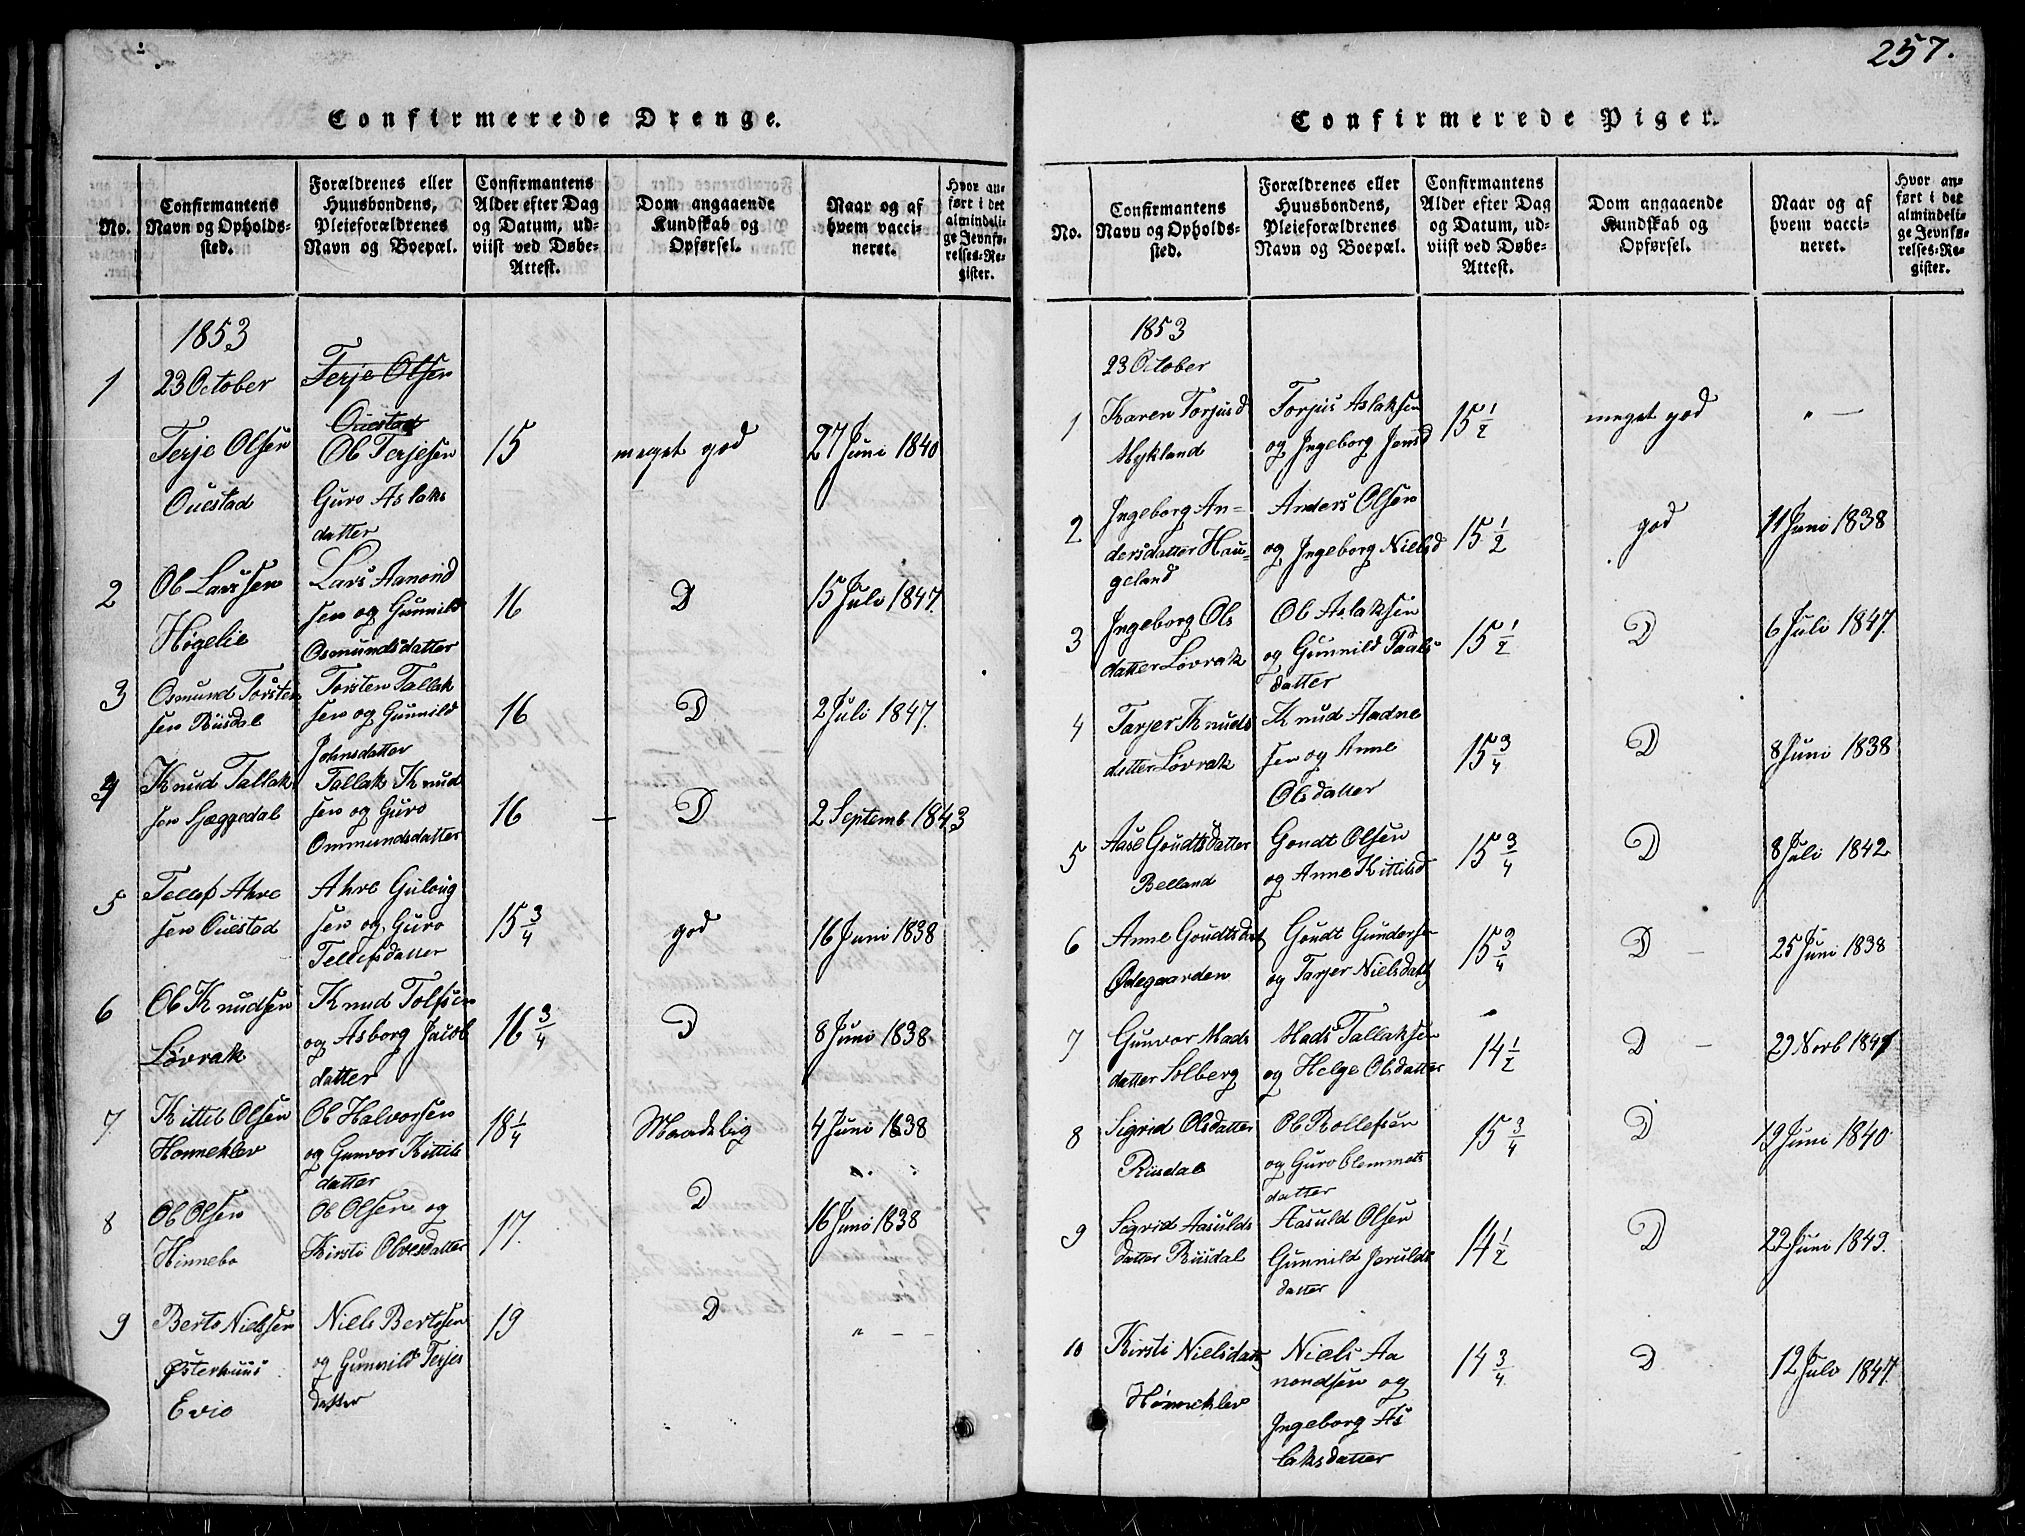 257.
Confirmerede Drenge.
No.
Confirmantens Navn og Opholds-sted.
Forældrenes eller Huusbondens, Pleieforældrenes Navn og Boepæl.
Confirmantens Alder efter Dag og Datum, ud-viist ved Døbe-Attest.
Dom angaaende Kundskab og Opførsel.
Naar og af hvem vacci-neret.
Hvor an-ført i det almindeli-ge Jevnfø-relses-Re-gister.
1853
23 October
Terje Olsen
Ouestad
1
Terje Olsen
Ouestad
Ol Terjesen
Guro Aslaks
datter
15
meget god
27 Juni 1840
2
Ol Larssen
Høgelie
Lars Aanond
sen og Gunnild
Osmundsdatter
16
D
15 Juli 1847.
3
Osmund Torsten
sen Riisdal
Torsten Tallak
sen og Gunnild
Johnsdatter
16
D
2 Juli 1847.
4
Knud Tallak
sen Sjæggedal
Tallak Knud
sen og Guro
Ommundsdatter
16
D
2 Septemb 1843
5
Tellef Ahre
sen Ouestad
Ahre Guloug
sen og Guro
Tellefsdatter
15 3/4
god
16 Juni 1838
6
Ol Knudsen
Løvrak
Knud Tolfsen
og Asborg Jacob
datter
16 3/4
D
8 Juni 1838
7
Kittel Olsen
Honneklev
Ol Halvorsen
og Gunvor Kittils
datter
18 1/4
Maadelig
4 Juni 1838
8
Ol Olsen
Hinnebo
Ol Olsen og
Kirsti Olvesdatter
17.
D
16 Juni 1838
9
Berto Nielssen
Østerhuus
Evio
Niels Bertosen
og Gunnild Terjes
datter
19
D
" — —
Confirmerede Piger.
No.
Confirmantens Navn og Opholds-sted.
Forældrenes eller Huusbondens, Pleieforældrenes Navn og Boepæl.
Confirmantens Alder efter Dag og Datum, ud-viist ved Døbe-Attest.
Dom angaaende Kundskab og Opførsel.
Naar og af hvem vacci-neret.
Hvor an-ført i det almindeli-ge Jevnfø-relses-Re-gister.
1853
23 October
1
Karen Torjusd
Mykland
Torjus Aslaksen
og Ingeborg Jensd
15 1/2
meget god
" —
2
Ingeborg An-
dersdatter Hau-
geland
Anders Olsen
og Ingeborg Nielsd
15 1/2
god
11 Juni 1838
3
Ingeborg Ols
datter Løvrak
Ol Aslaksen
og Gunnild Paals
datter
15 1/2
D
6 Juli 1847.
4
Tarjer Knuds
datter Løvrak
Knud Aadne
sen og Anne
Olsdatter
15 3/4
D
8 Juni 1838
5
Aase Goudtsdatter
Belland
Goudt Olsen
og Anne Kittilsd
15 3/4
D
8 Juli 1842
6
Anne Goudtsdat
Ødegaarden
Goudt Gundersen
og Tarjer Nielsdatt
15 3/4
D
25 Juni 1838
7
Gunvor Mads
datter Solberg
Mads Tallaksen
og Helge Olsdatter
14 1/2
D
8
Sigrid Olsdatter
Riisdal
Ol Rollefsen
og Guro Clemmets
datter
15 3/4
D
19 Juni 1840
9
Sigrid Aasulds
datter Riisdal
Aasuld Olsen
Gunnild Jeruldsdatter
14 1/2
D
22 Juni 1843.
10
Kirsti Nielsdatt
Hønneklev
Niels Aa
nondsen og
Ingeborg As
laksdatter
14 3/4
D
12 Juli 1847.